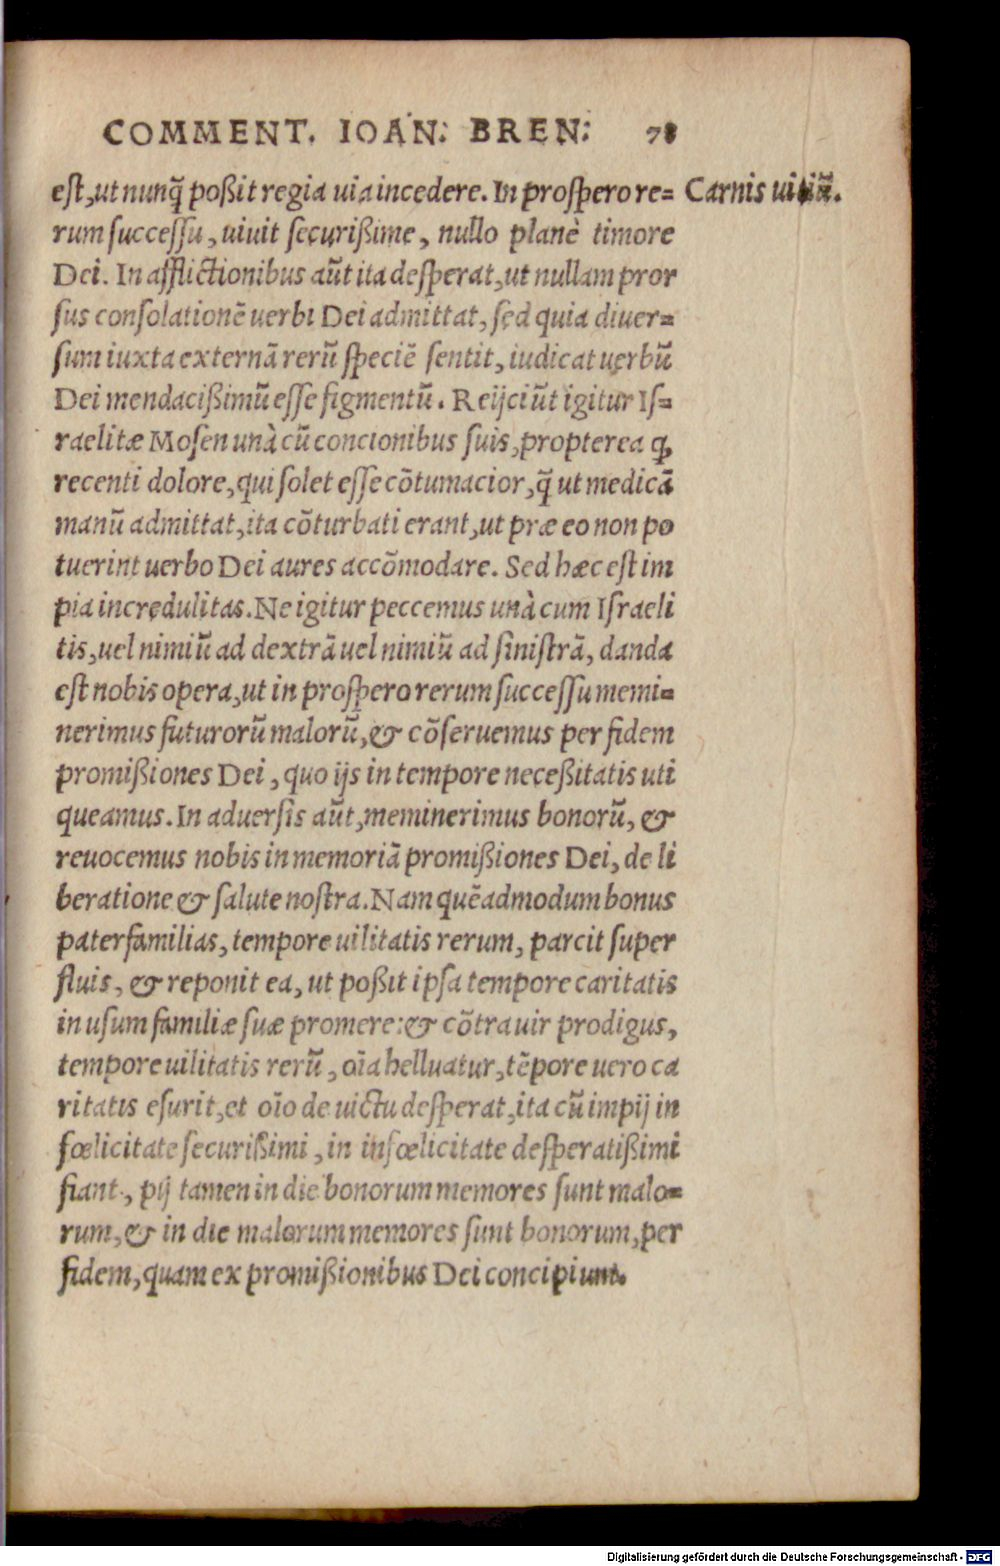 COMMENT. IOAN. BREN. 78
est, ut nunq̃ poßit regia uia incedere. In prospero re=
Carnis uitiũ.
rum successu, uiuit securißime, nullo planè timore
Dei. In afflictionibus aũt ita desperat, ut nullam pror
sus consolationẽ uerbi Dei admittat, sed quia diuer=
sum iuxta externã rerũ speciẽ sentit, iudicat uerbũ
Dei mendacißimũ esse figmentũ. Reijciũt igitur Is=
raelitæ Mosen unà cũ concionibus suis, propterea ꝙ
recenti dolore, qui solet esse cõtumacior, q̃ ut medicã
manũ admittat, ita cõturbati erant, ut præ eo non po
tuerint uerbo Dei aures accõmodare. Sed hæc est im
pia incredulitas. Ne igitur peccemus unà cum Israeli
tis, uel nimiũ ad dextrã uel nimiũ ad sinistrã, danda
est nobis opera, ut in prospero rerum successu memi=
nerimus futurorũ malorũ, & cõseruemus per fidem
promißiones Dei, quo ijs in tempore neceßitatis uti
queamus. In aduersis aũt, meminerimus bonorũ, &
reuocemus nobis in memoriã promißiones Dei, de li
beratione & salute nostra. Nam quẽadmodum bonus
paterfamilias, tempore uilitatis rerum, parcit super
fluis, & reponit ea, ut poßit ipsa tempore caritatis
in usum familiæ suæ promere: & cõtra uir prodigus,
tempore uilitatis rerũ, oĩa helluatur, tẽpore uero ca
ritatis esurit, et oĩo de uictu desperat, ita cũ impij in
fœlicitate securißimi, in infœlicitate desperatißimi
fiant, pij tamen in die bonorum memores sunt malo=
rum, & in die malorum memores sunt bonorum, per
fidem, quam ex promißionibus Dei concipiunt.
Digitalisierung gefördert durch die Deutsche Forschungsgemeinschaft - DFG